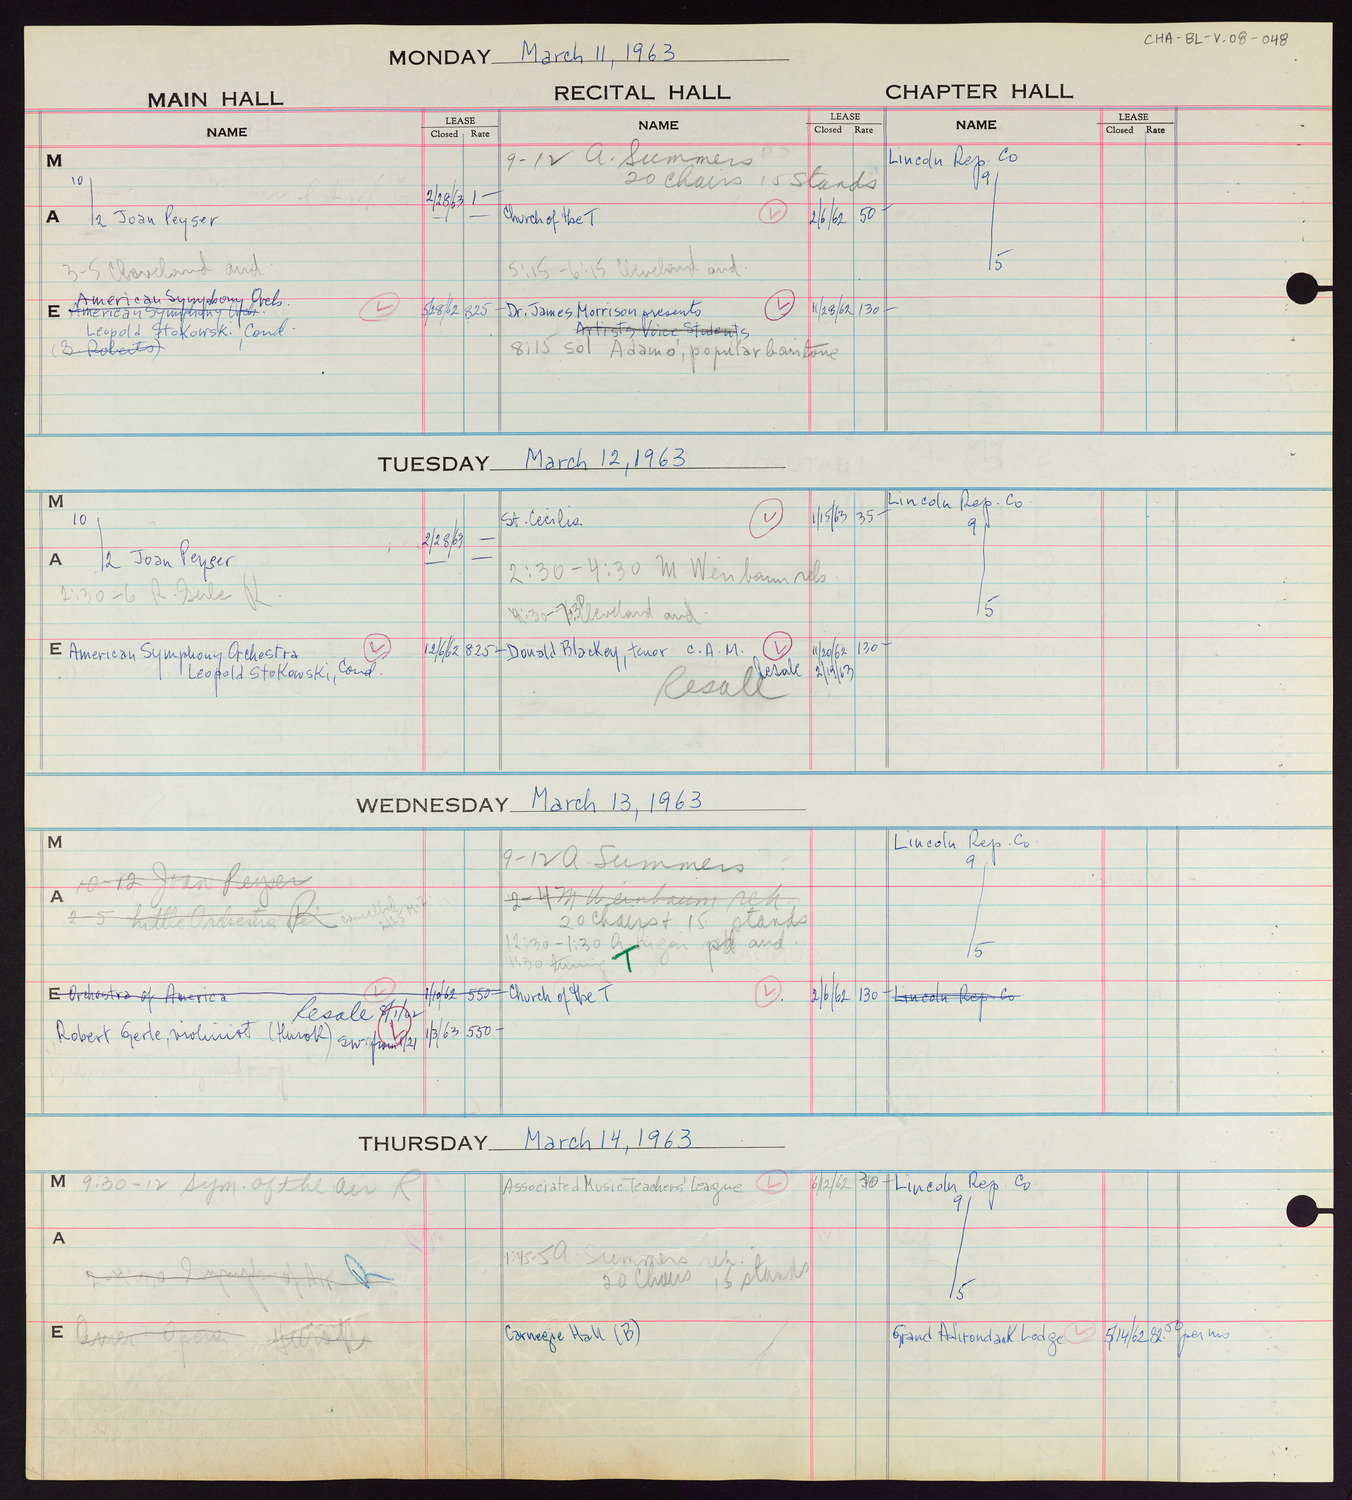 CHA-BL-V.08-048
MONDAY March 11, 1963
MAIN HALL
RECITAL HALL
CHAPTER HALL
NAME
LEASE
Closed Rate
NAME
LEASE
Closed Rate
NAME
LEASE
Closed Rate
M
10
2 Joan Peyser
2/28/63 1—
9-12 A. Summers
20 chairs 15 stands
Lincoln Rep. Co
9
5
A
Church of the T
2/6/62 50
3-5 Cleveland aud.
5:15-6:15 Cleveland aud.
E
American Symphony Orch.
American Symphony Orch.
Leopold Stokowski, Cond.
(3 Roberts)
5/28/62 825
Dr. James Morrison presents
Artists Voice Students
8:15 Sol Adamo, popular baritone
11/28/62 130
TUESDAY March 12, 1963
M
10
St. Cecilia
1/15/63 35
Lincoln Rep. Co.
9
5
A
2 Joan Peyser
2/28/63 —
2:30-6 R. Gerle R.
2:30-4:30 M Weinbaum reh.
Cleveland aud.
E American Symphony Orchestra
Leopold Stokowski, Cond.
12/6/62 825
Donald Blackey, tenor C.A.M.
Resale
Resale
11/20/62 130
2/19/63
WEDNESDAY March 13, 1963
M
9-12 A. Summers
Lincoln Rep. Co.
9
5
A
10-12 Joan Peyser
2-5 Little Orchestra R
cancelled
2-4 M Weinbaum reh.
20 chairs + 15 stands
12:30-1:30
pd aud.
tuning T
E Orchestra of America
1/19/62 550
Resale
Church of the T
2/6/62 130
Lincoln Rep. Co
Robert Gerle, violinist (Hurok)
1/3/63 550
THURSDAY March 14, 1963
M 9:30-12 Sym. of the air R
Associated Music Teachers' League
6/12/62
Lincoln Rep. Co
9
5
A
R
1:45-5 A. Summers reh.
20 Chairs 15 stands
E
Opera
Carnegie Hall (B)
Grand Adirondack Lodge
5/14/62 82.50 per mo